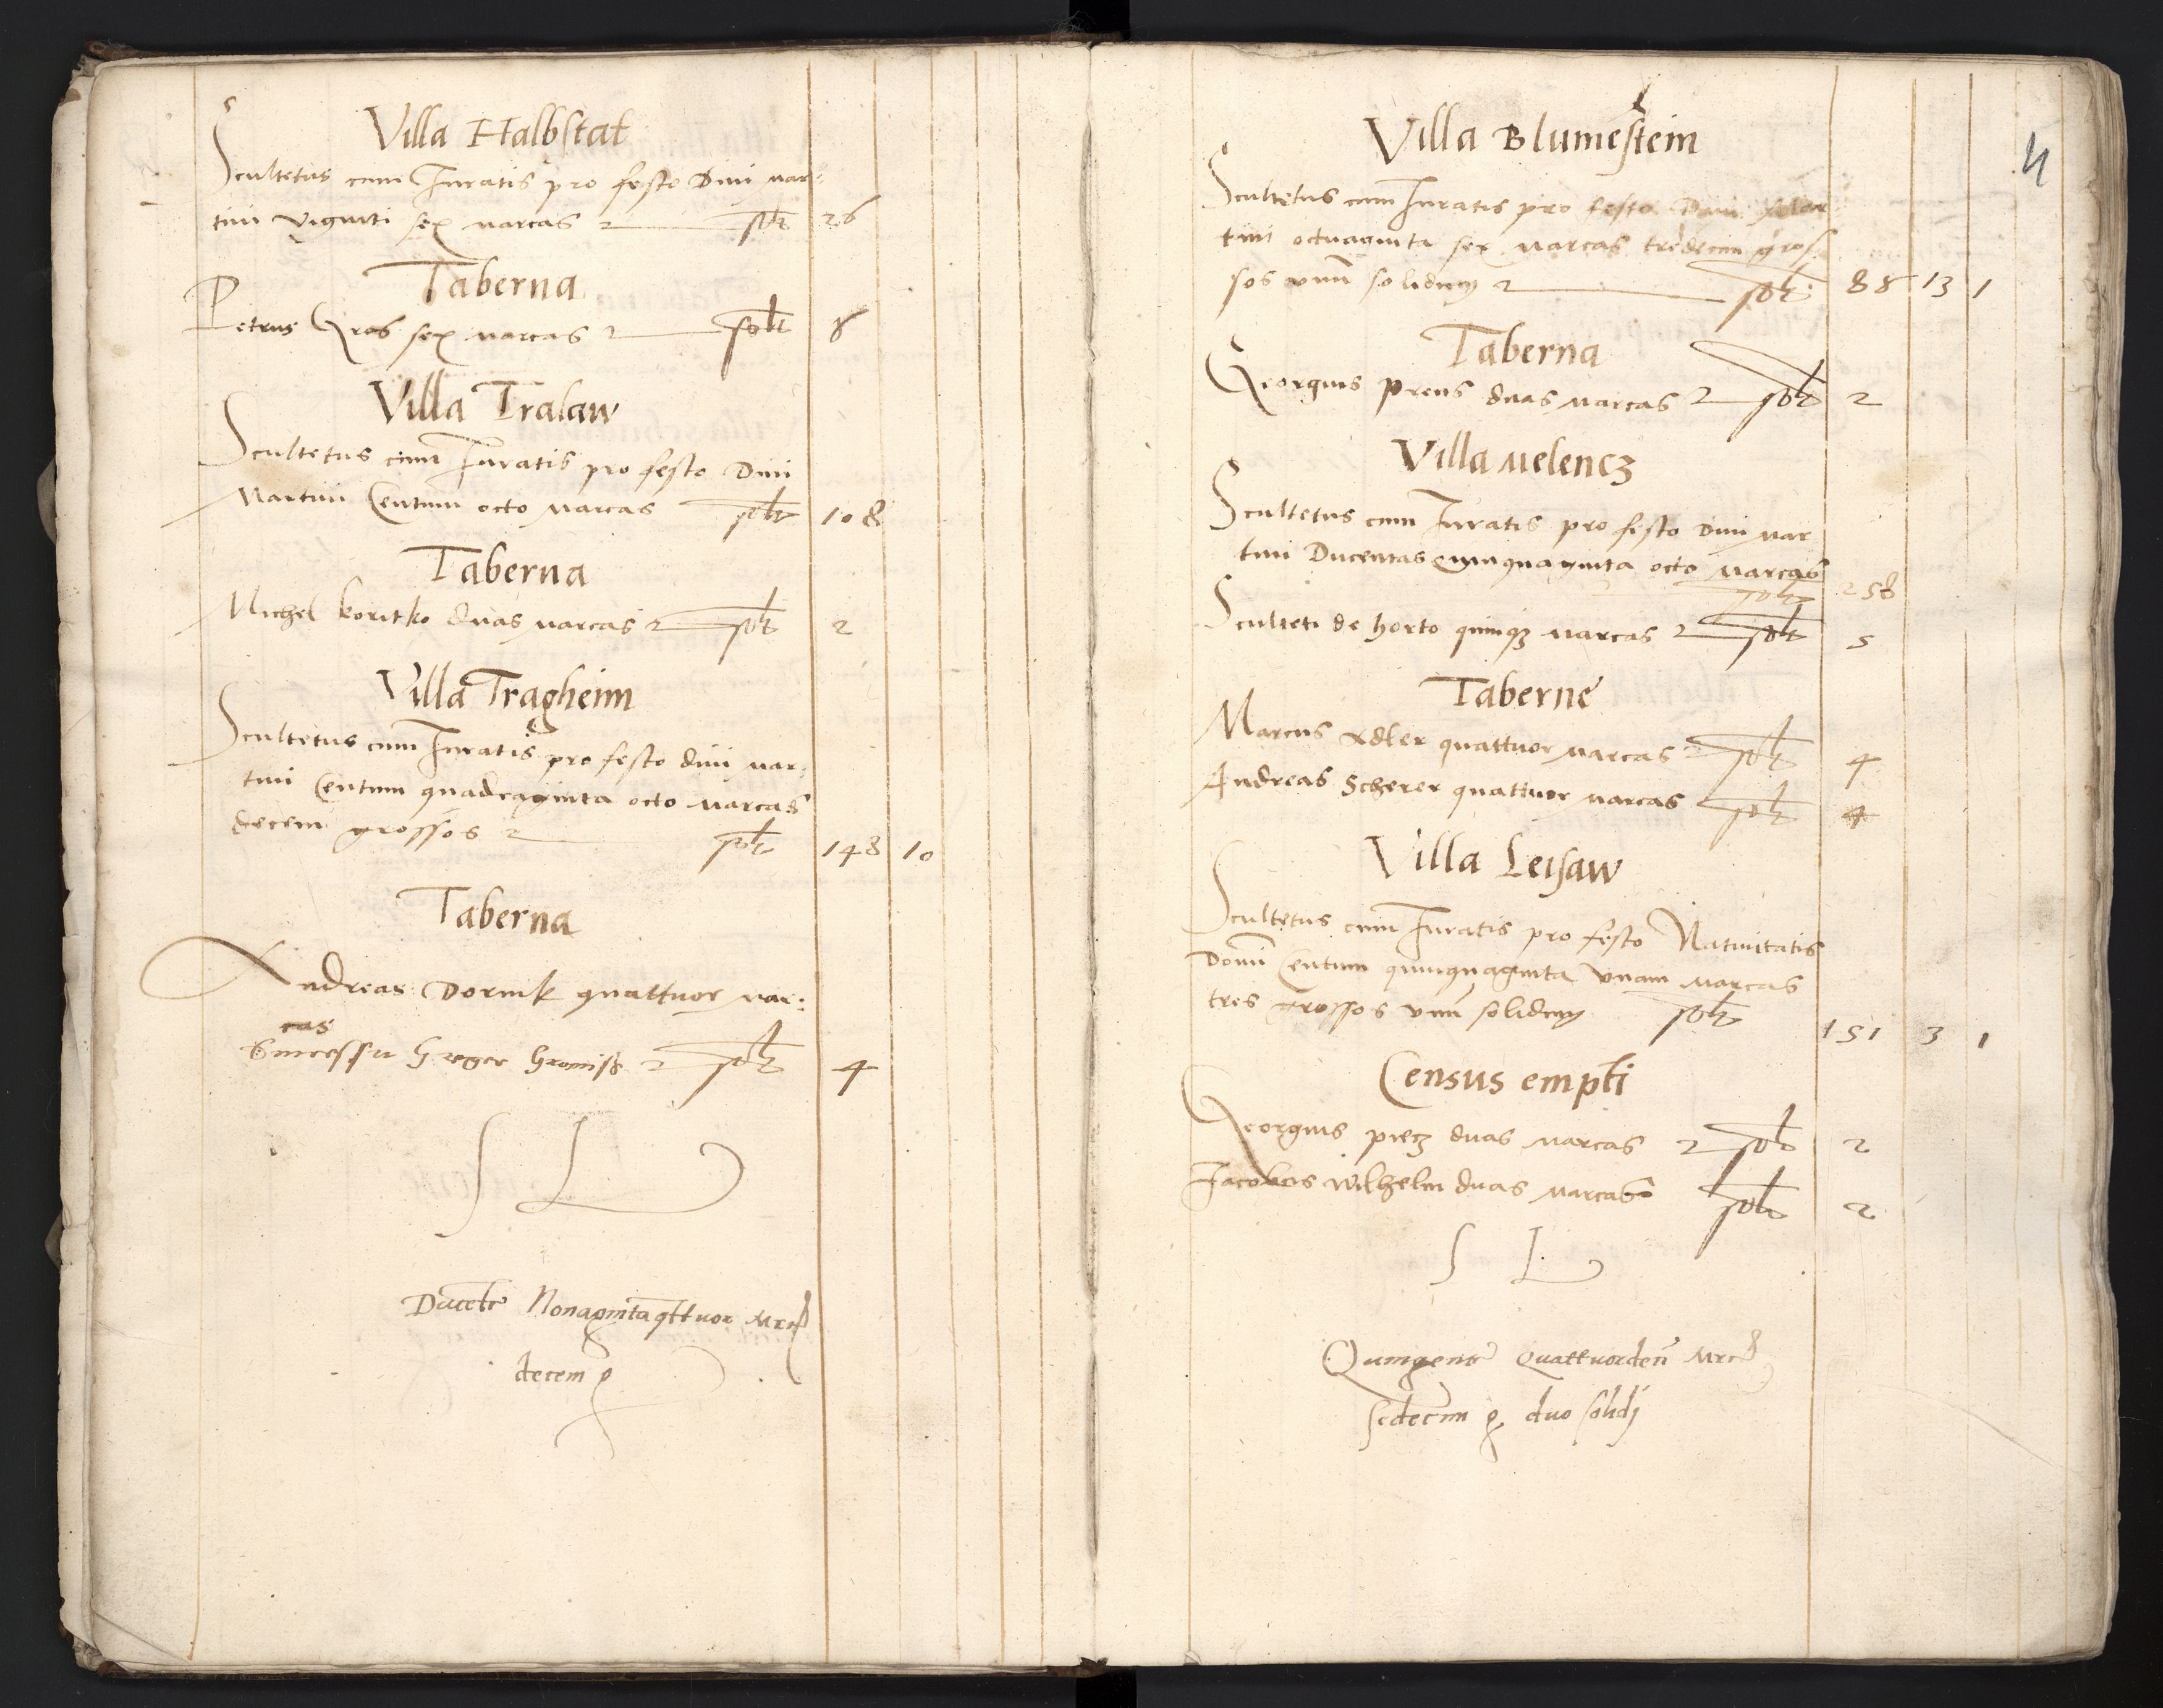 Villa Halbstat
Scultetus cum Juratis pro festo Divi Mar:
tini Viginti sex marcas solt 26
Taberna
Petrus Gros sex marcas solt 6
Villa Tralaw
Scultetus cum Juratis pro festo Divi
Martini Centum octo marcas solt 108
Taberna
Michel Koritko duas marcas solt 2
Villa Tragheim
Scultetus cum Juratis pro festo divi Mar:
tini Centum quadraginta octo Marcas
decem grossos solt 148 10
Taberna
Andreas Dornik quattuor mar:
cas
Successit Greger solt 4
S L
Ducente Nonagintaqttuor Mrc
decem g
Villa Blumestein
4
Scultetus cum Juratis pro festo Divi Mar
tini octuaginta sex marcas tredecim gros
sos unum solidum solt 86 13 1
Taberna
Georgius Preus duas marcas solt 2
Villa Melencz
Scultetus cum Juratis pro festo Divi Mar
tini Ducentas quinquaginta octo Marcas
solt 258
Sculteti de horto quinq3 marcas solt 5
Taberne
Marcus Adler quattuor marcas solt 4
Andreas Scherer quattuor marcas solt 4
Villa Leisaw
Scultetus cum Juratis pro festo Nativitatis
Domini Centum quinquaginta Unam Marcas
tres grossos unum solidum solt 151 3 1
Census empti
Georgius piecz duas marcas solt 2
Jacobus Wilhelm duas marcas solt 2
S L
Quingente Quattuordeci Mrc
sedecim g duo solidj